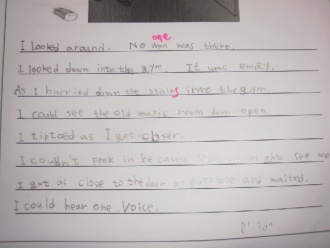 one
I looked around. No was there.
I looked down into the gym. It was empty.
As I hurried down the stairs into the gym.
I could see the old music room door open
I tiptoed as I got closer.
I couldn't peek in be cause see me
I got as close to the door as possible and waited.
I could hear one voice.